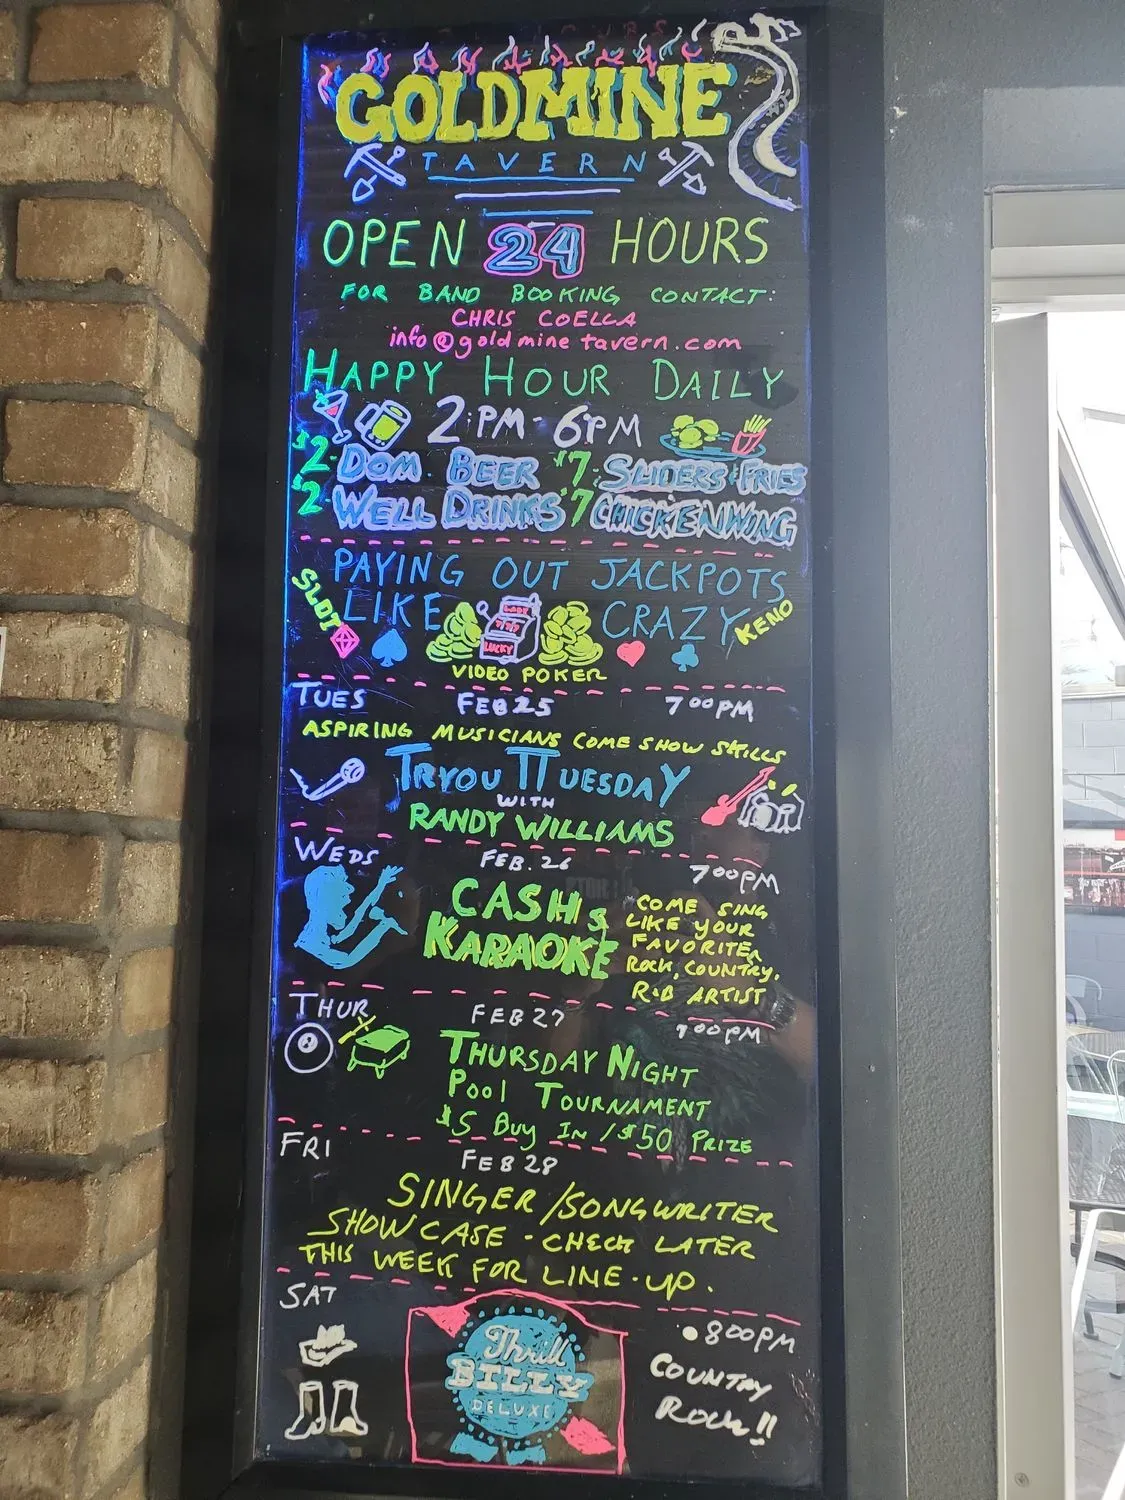 GOLDMINE
TAVERN
OPEN 24 HOURS
FOR BAND BOOKING CONTACT:
CHRIS COELLA
info@goldminetavern.com
HAPPY HOUR DAILY
2:PM-6PM
$2-DOM BEER $7-SLIDERS & FRIES
$2-WELL DRINKS $7 CHICKENWING
PAYING OUT JACKPOTS
SLOT LIKE CRAZY KENO
777
LUCKY
VIDEO POKER
TUES FEB 25 700PM
ASPIRING MUSICIANS COME SHOW SKILLS
TRYOUTTUESDAY
WITH
RANDY WILLIAMS
WEDS FEB. 26 700PM
CASH $
KARAOKE
COME SING
LIKE YOUR
FAVORITE
ROCK, COUNTRY,
R&B ARTIST
THUR FEB 27 900PM
8
THURSDAY NIGHT
POOL TOURNAMENT
$5 BUY IN / $50 PRIZE
FRI FEB 28
SINGER/SONGWRITER
SHOWCASE - CHECK LATER
THIS WEEK FOR LINE-UP.
SAT 800PM
Thrill
BILLY
DELUXE
COUNTRY
ROCK!!